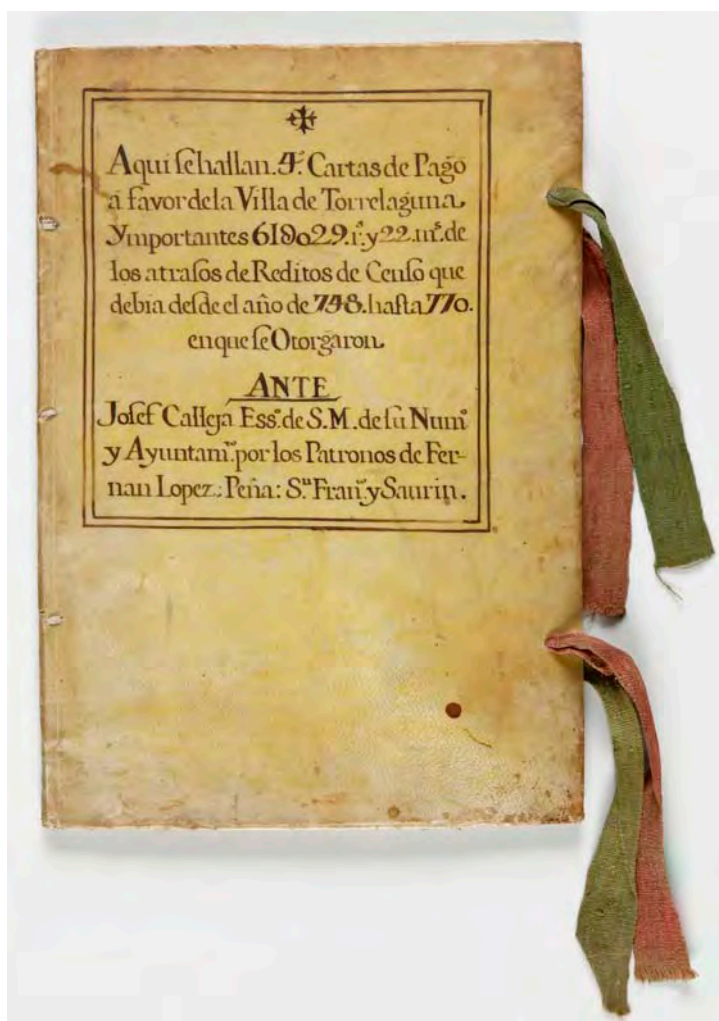 Aqui se hallan. 4.º Cartas de Pago
á favor de la Villa de Torrelaguna
Ymportantes 61℧029. r.s y 22. m.s de
los atrasos de Reditos de Censo que
debia desde el año de 748. hasta 770.
en que se Otorgaron.
ANTE
Josef Calleja Ess.no de S.M. de su Num.o
y Ayuntam.to por los Patronos de Fer-
nan Lopez: Peña: S.n Fran.co y Saurin.